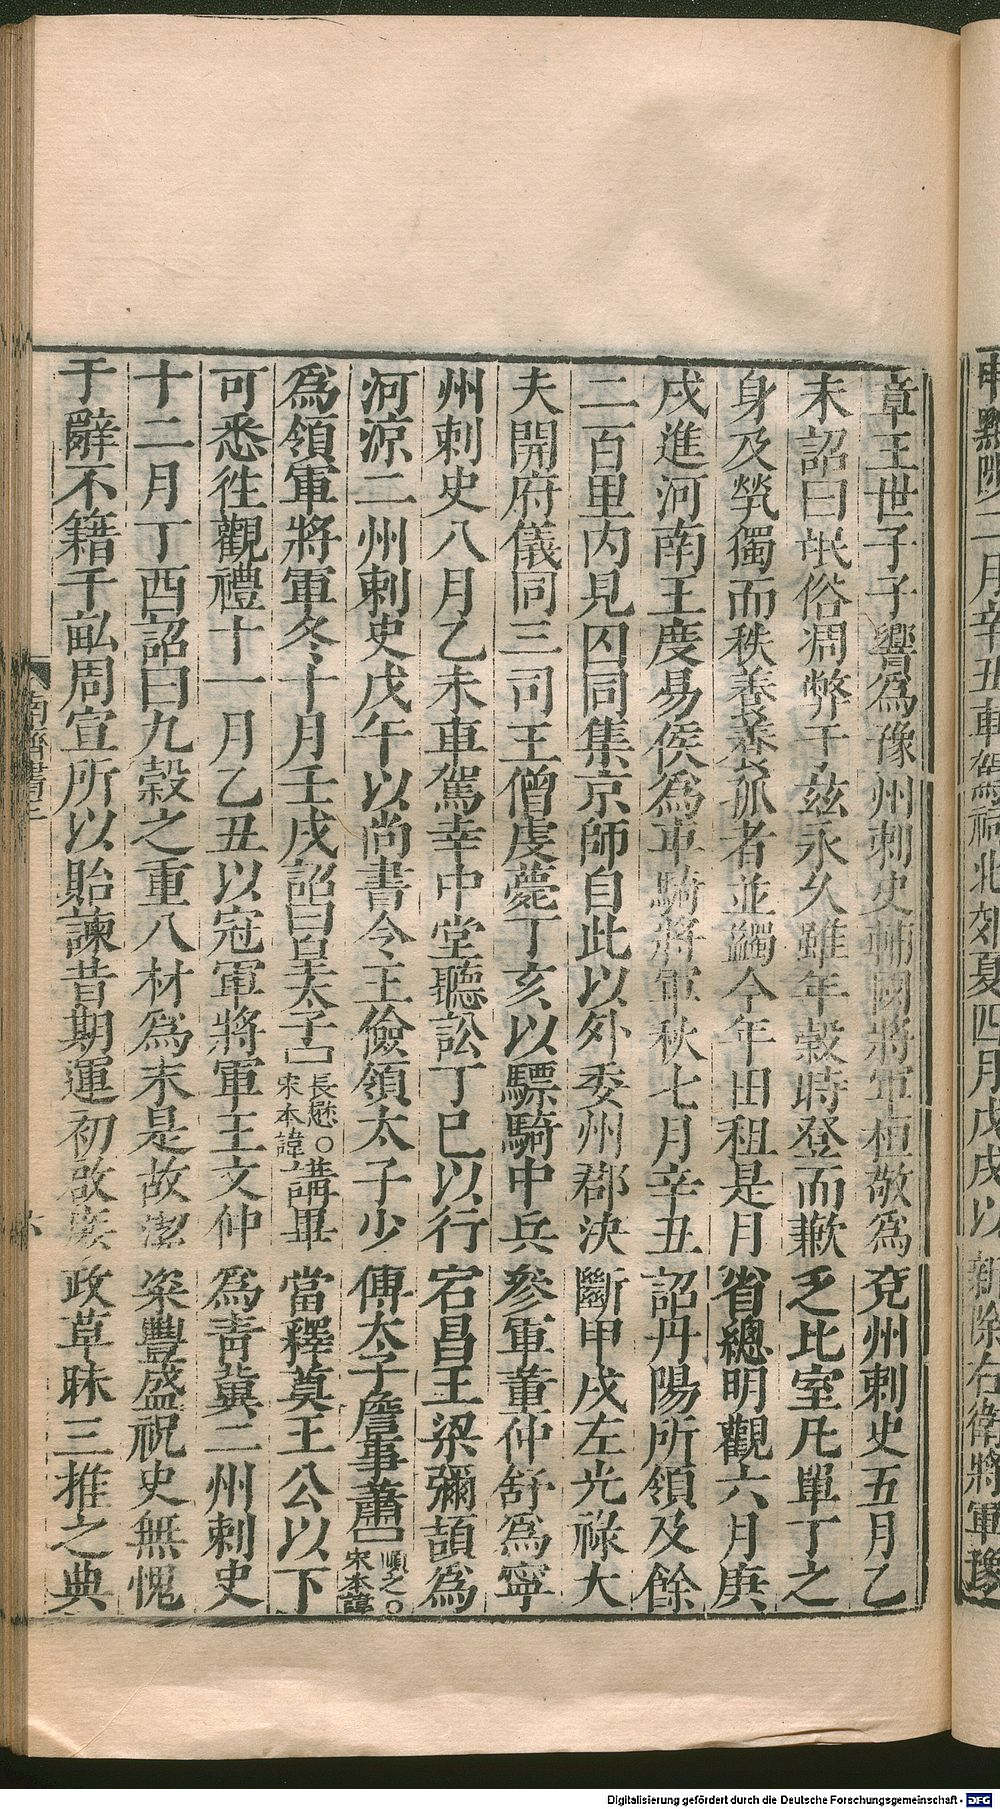 章王世子子響爲豫州刺史輔國將軍桓敬爲兗州刺史五月乙
未詔曰氓俗凋弊于茲永久雖年穀時登而歉乏比室凡單丁之
身及煢獨而秩養養孤者並蠲今年田租是月省總明觀六月庚
戌進河南王度易侯爲車騎將軍秋七月辛丑詔丹陽所領及餘
二百里內見囚同集京師自此以外委州郡決斷甲戌左光祿大
夫開府儀同三司王僧虔薨丁亥以驃騎中兵參軍董仲舒爲寧
州刺史八月乙未車駕幸中堂聽訟丁巳以行宕昌王梁彌頡爲
河涼二州刺史戊午以尚書令王儉領太子少傅太子詹事蕭□順之○宋本諱
爲領軍將軍冬十月壬戌詔曰皇太子□長懋○宋本諱講畢當釋奠王公以下
可悉徃觀禮十一月乙丑以冠軍將軍王文仲爲靑冀二州刺史
十二月丁酉詔曰九穀之重八材爲末是故潔粢豐盛祝史無愧
于辭不籍千畝周宣所以貽諫昔期運初啟庶政草昧三推之典
南齊書三
申黜陟二月辛丑車駕祠北郊夏四月戊戌以新除右衛將軍豫
Digitalisierung gefördert durch die Deutsche Forschungsgemeinschaft - DFG